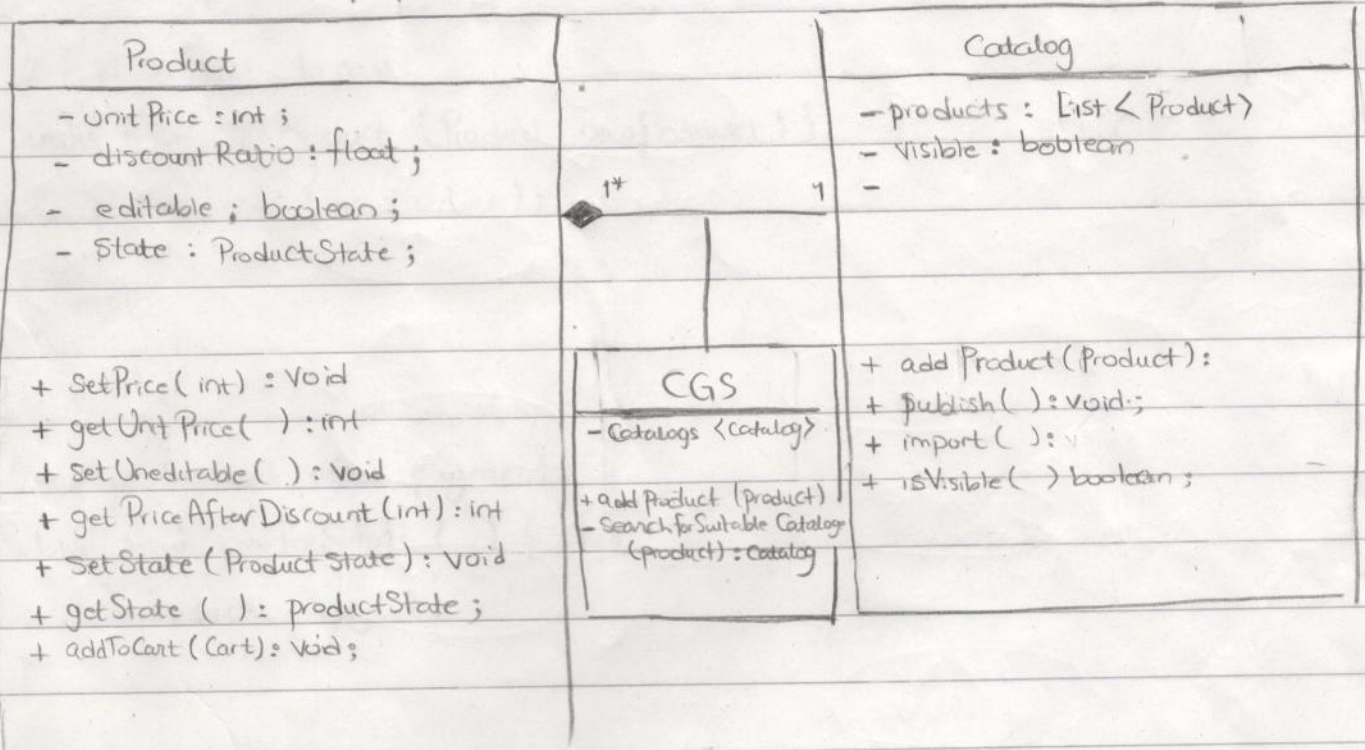 Product
- Unit Price : int ;
- discount Ratio : float ;
- editable ; boolean ;
- State : ProductState ;
+ SetPrice( int) : Void
+ getUnit Price( ) : int
+ set Uneditable( ) : void
+ get PriceAfterDiscount (int) : int
+ Set State (Product State) : void
+ getState ( ) : productState ;
+ addToCart (Cart) : void ;
1* 1
CGS
- Catalogs <catalog>
+ add Product (product)
- Search for Suitable Catalog
(product) : Catalog
Catalog
- products : List < Product>
- Visible : boolean
-
+ add Product (Product) :
+ publish( ) : void ;
+ import ( ) :
+ isVisible( ) boolean ;